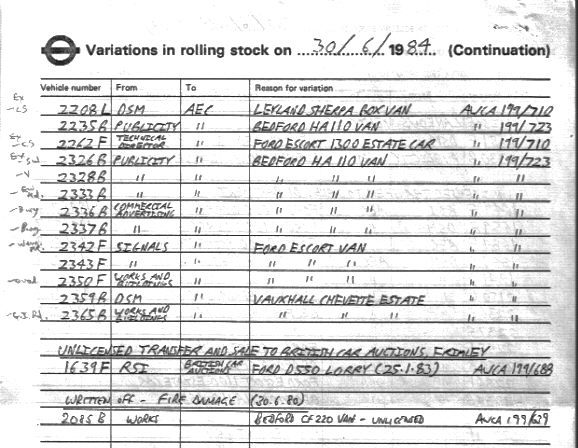 Variations in rolling stock on 30/6/1984 (Continuation)
Vehicle number From To Reason for variation
Ex
-CS 2208 L DSM AEC LEYLAND SHERPA BOX VAN AUCA 199/710
2235 B PUBLICITY " BEDFORD HA 110 VAN " 199/723
Ex
-CS 2262 F TECHNICAL DIRECTOR " FORD ESCORT 1300 ESTATE CAR " 199/710
2326 B PUBLICITY " BEDFORD HA 110 VAN " 199/723
2328 B " " " " " " "
2333 B " " " " " " "
2336 B COMMERCIAL ADVERTISING " " " " " "
2337 B " " " " " " "
2342 F SIGNALS " FORD ESCORT VAN " "
2343 F " " " " " " "
2350 F WORKS AND BUILDINGS " " " " " "
2359 B DSM " VAUXHALL CHEVETTE ESTATE " "
2365 B WORKS AND BUILDINGS " " " " " "
UNLICENSED TRANSFER AND SALE TO BRITISH CAR AUCTIONS, FRIMLEY
1639 F RSI BRITISH CAR AUCTIONS FORD D550 LORRY (25.1.83) AUCA 199/688
WRITTEN OFF - FIRE DAMAGE (20.6.80)
2085 B WORKS BEDFORD CF 220 VAN - UNLICENSED AUCA 199/629